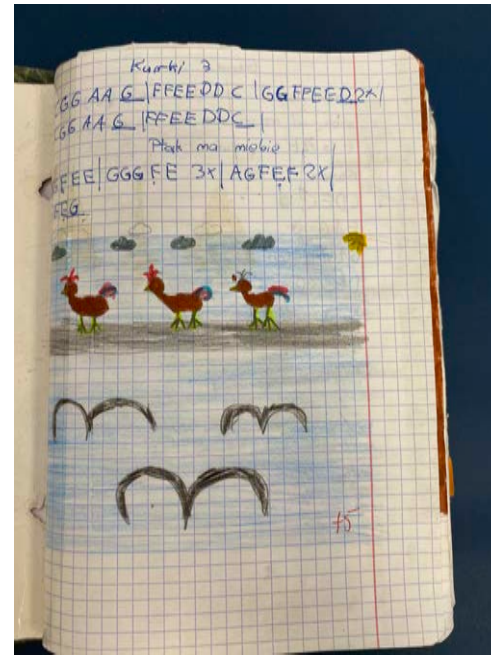 Kurki 3
CGG AA G |FFEEDD C |GGFFEED2x|
CGG AA G |FFEE DDC |
Ptak ma niebie
GFEE| GGGFE 3x| AGFEF 2X|
FEG
+5